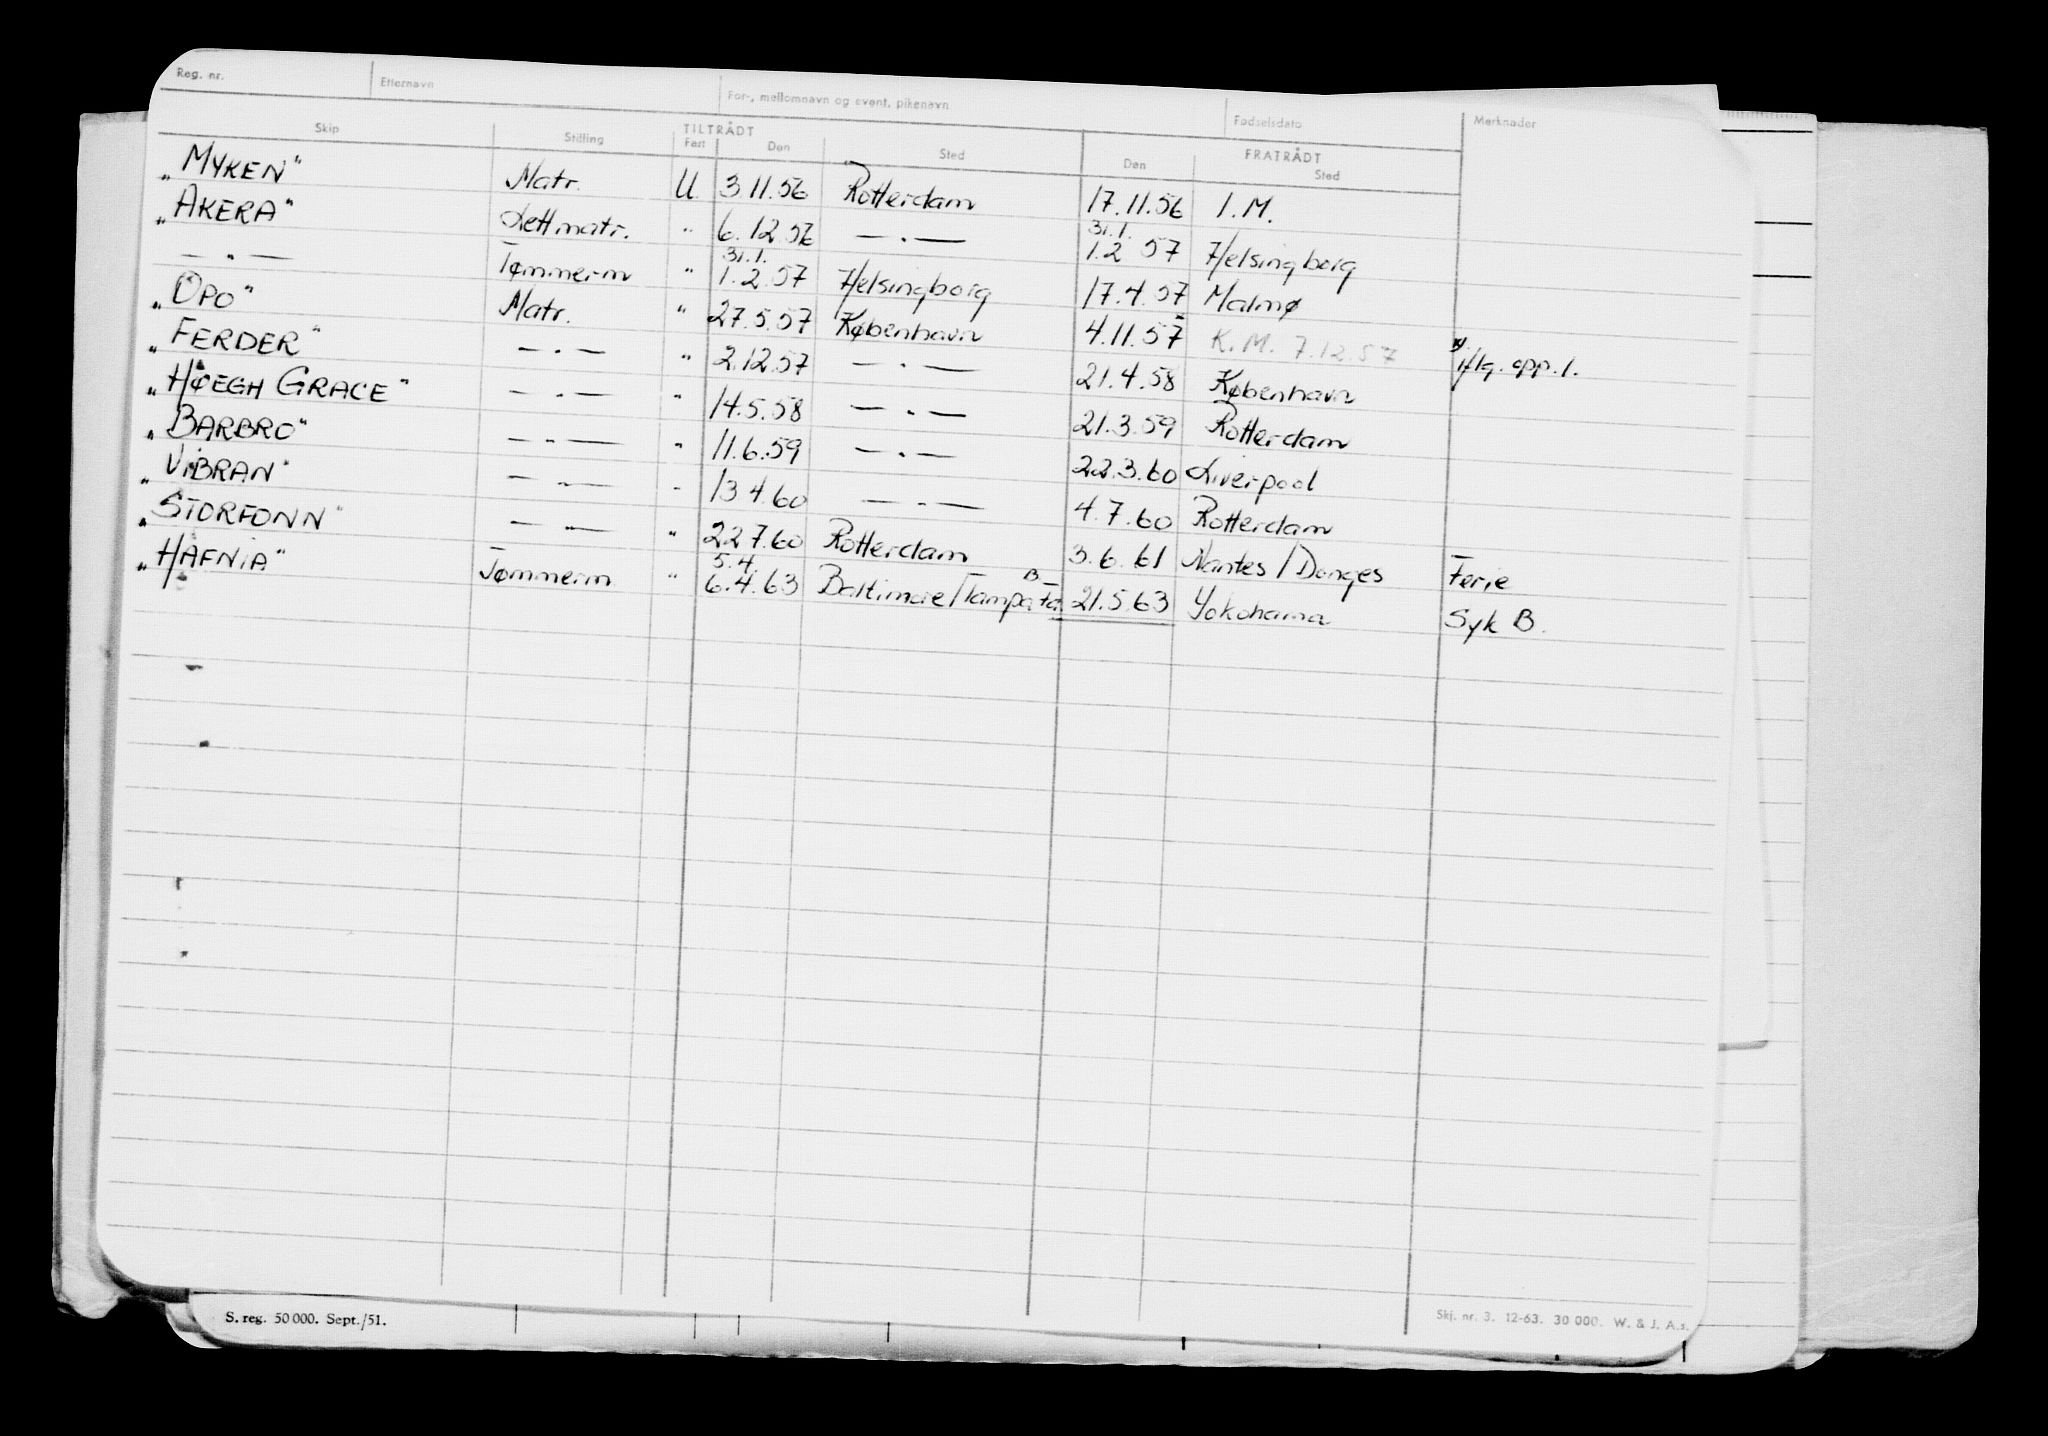 Reg. nr. Etternavn For-, mellomnavn og event. pikenavn Fødselsdato Merknader
Skip Stilling TILTRÅDT Fart Den Sted FRATRÅDT Den Sted
"MYKEN" Matr. U 3.11.56 Rotterdam 17.11.56 I.M.
"AKERA" Lettmatr. " 6.12.56 — . — 31.1. 1.2 57 Helsingborg
— " — Tømmerm " 31.1. 1.2.57 Helsingborg 17.4.57 Malmø
"OPO" Matr. " 27.5.57 København 4.11.57 K.M. 7.12.57 iflg. opp. 1.
"FERDER" — . — " 2.12.57 — . — 21.4.58 København
"HØEGH GRACE" — . — " 14.5.58 — . — 21.3.59 Rotterdam
"BARBRO" — " — " 11.6.59 — . — 22.3.60 Liverpool
"VIBRAN" — " — " 13 4.60 — " — 4.7.60 Rotterdam
"STORFONN" — " — " 22 7.60 Rotterdam 3.6.61 Nantes/Donges Ferie
"HAFNIA" Tømmerm " 5.4. 6.4.63 Baltimore/Tampa B Fa. 21.5.63 Yokohama Syk B.
S. reg. 50 000. Sept./51.
Skj. nr. 3. 12-63. 30 000. W. & J. A.s.